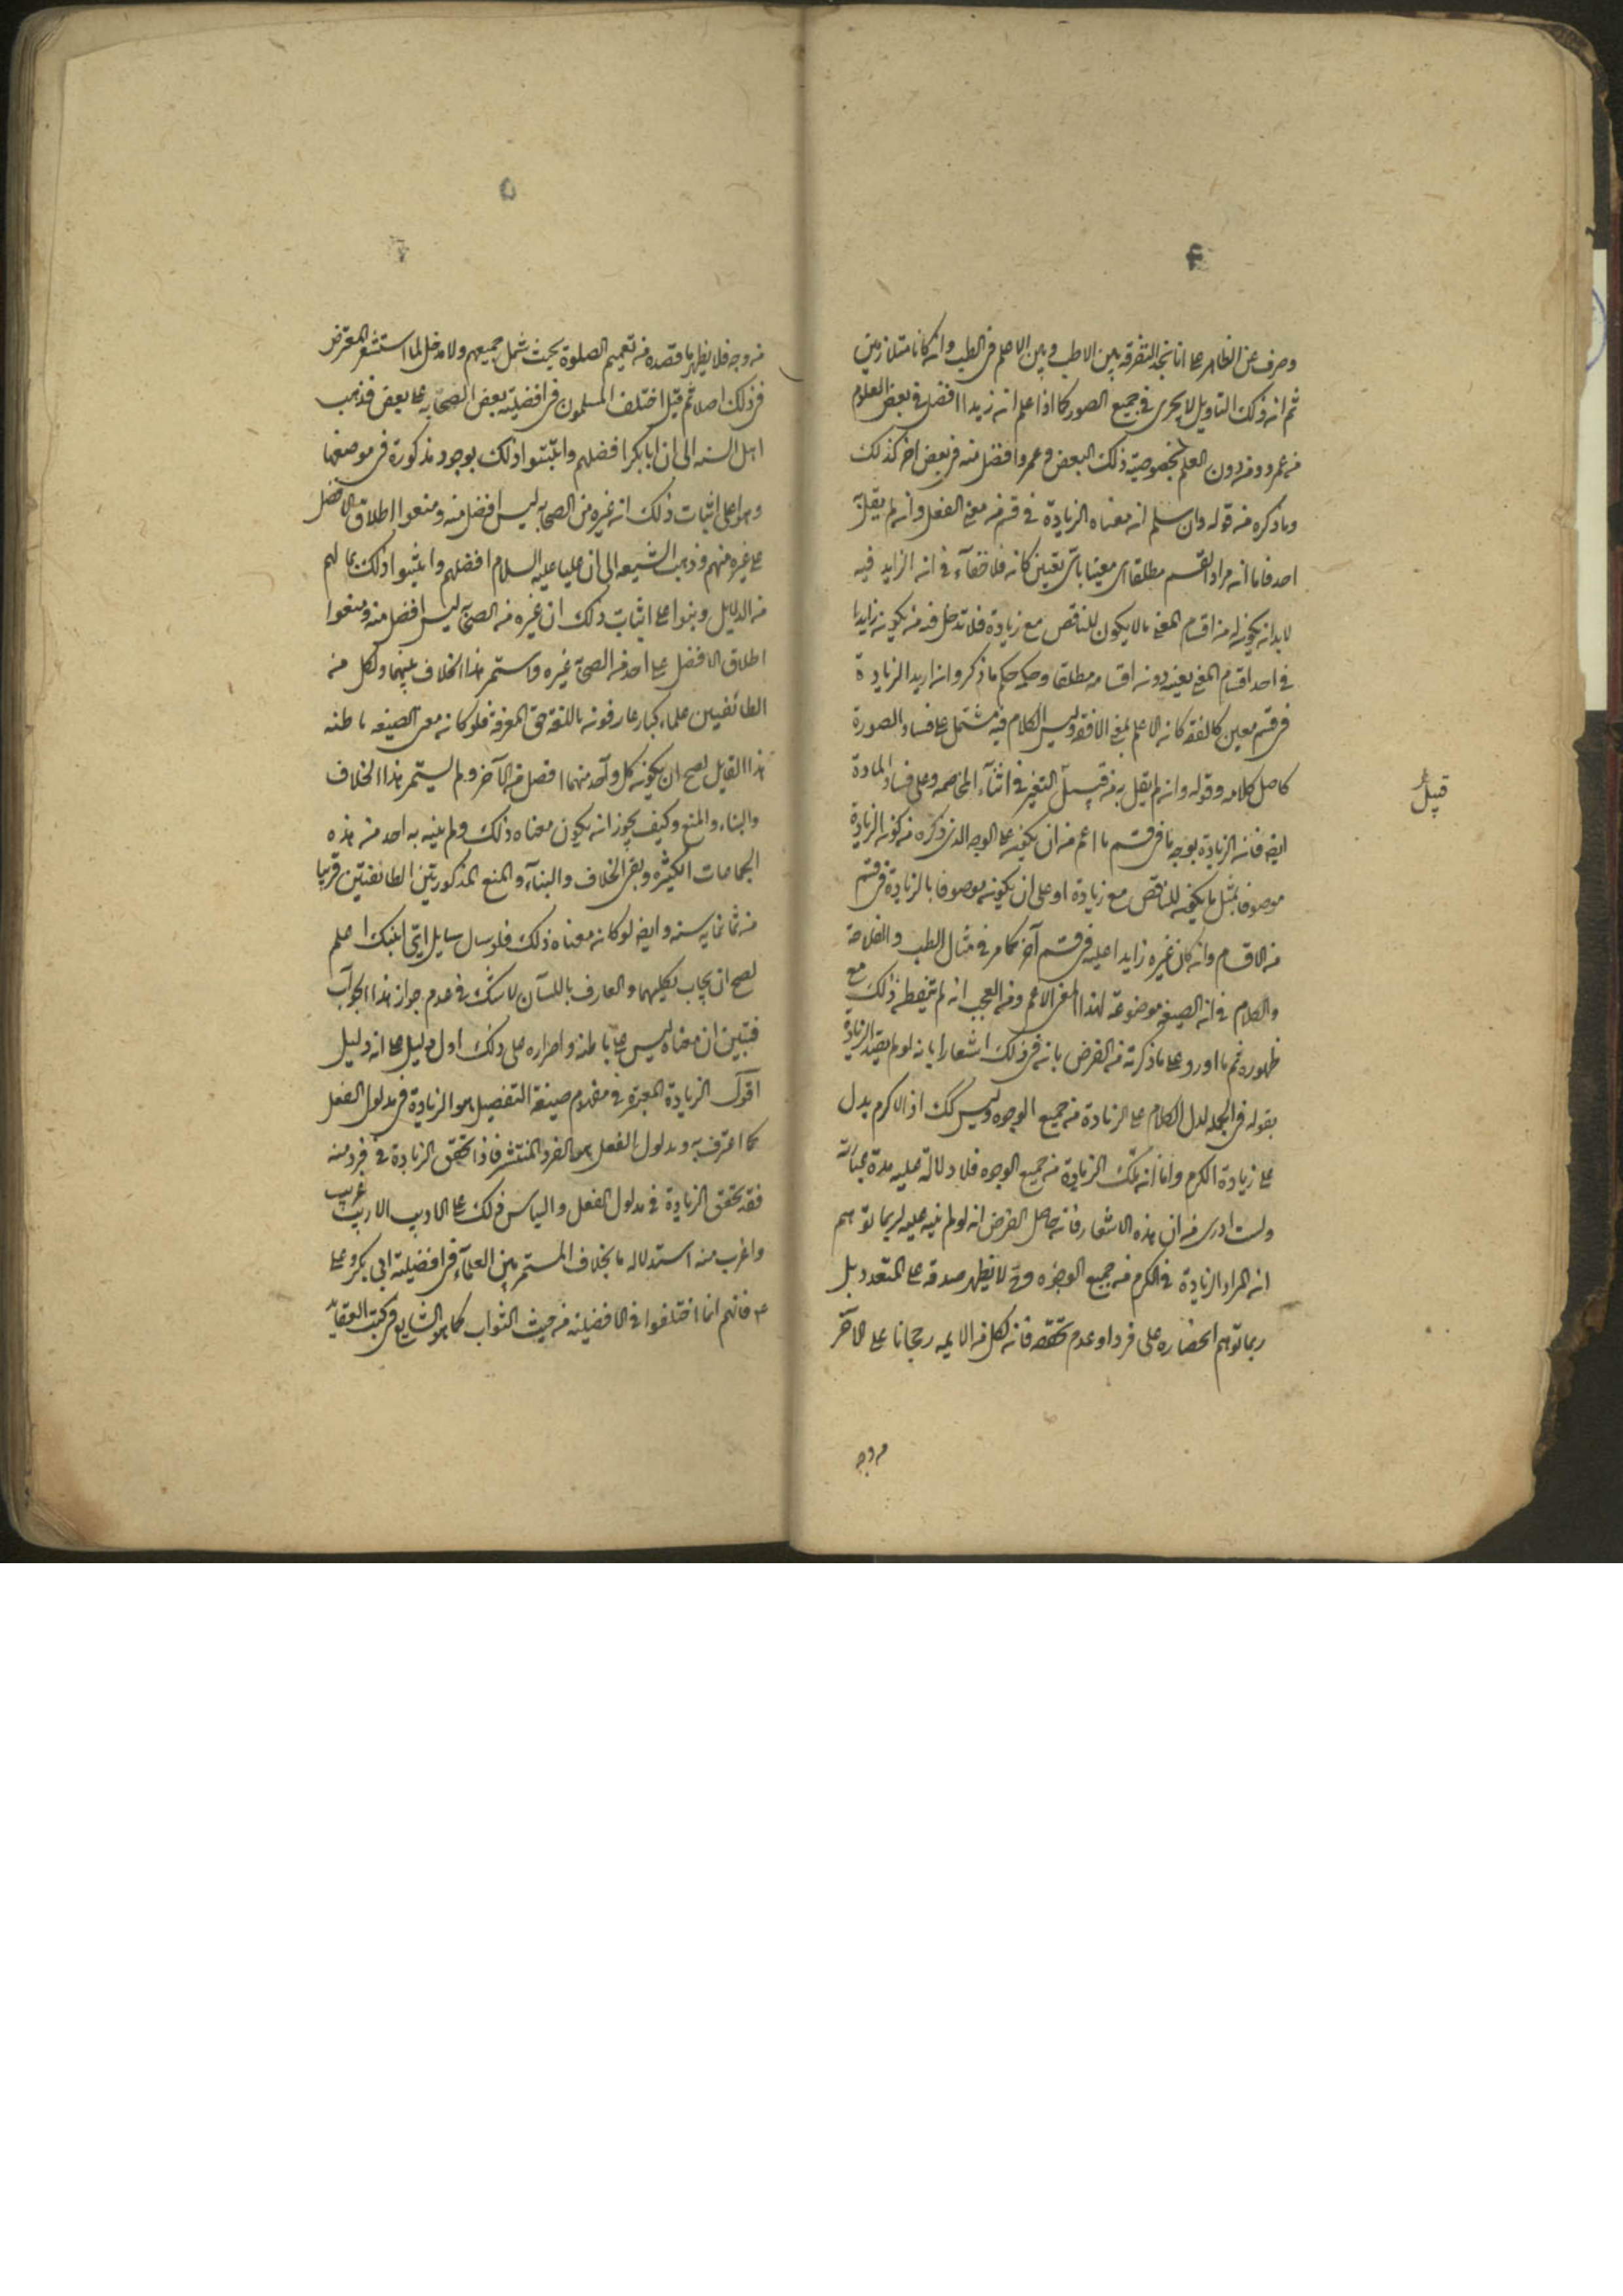 ۴
وصرف عن الظاهر على انا نجد التفرقه بين الاطب وبين الاعلم فى الطب وان كانا متلازمين
ثم ان ذلك التاويل لا يجرى فى جميع الصور كما اذا علم ان زيدا افضل فى بعض العلوم
من عمرو من دون العلم بخصوصية ذلك البعض وعمروا افضل منه فى بعض اخر كذلك
وما ذكره من قوله وان سلم ان معناه الزيادة فى قسم من معنى الفعل وان لم يقل به
احد فاما ان مراد القسم مطلقا اى معينا باى تعين كان فلا خفآء فى ان الزايد فيه
لا بد ان يكون له من اقسام المعنى ما لا يكون للناقص مع زيادة فلا تدخل فيه من يكون زايدا
فى احد اقسام المعنى بعينه دون اقسامه مطلقا وحكمه حكم ما ذكر وان اريد الزيادة
فى قسم معين كالفقه كان الاعلم بمعنى الافقه وليس الكلام فيه مشتمل على فساد الصورة
كاصل كلامه وقوله وان لم يقل به من قبيل التغير فى اثنآء المخاصمه وعلى فساد المادة
قبيل
ايضا فان الزيادة بوجه ما فى قسم ما اعم من ان يكون على الوجه الذى ذكره من كونه الزيادة
موصوفا بمثل ما يكون للناقص مع زيادة او على ان يكون موصوفا بالزيادة فى قسم
من الاقسام وان كان غيره زايدا عليه فى قسم آخر كما مر فى مثال الطب والفلاحة
والكلام فى ان الصيغة موضوعة لهذا المعنى الاعم ومن العجب انه لم يتفطن ذلك مع
ظهوره ثم ما اورد على ما ذكرته من الغرض بانه فى ذلك اشعارا بانه لو لم يقيد الزيادة
بقوله فى الجمله لدل الكلام على الزيادة من جميع الوجوه وليس كك اذ الاكرم يدل
على زيادة الكرم واما ان تلك الزيادة من جميع الوجوه فلا دلالة عليه مدة عبارته
ولست ادرى من اين هذه الاشعار فان حاصل الغرض انه لو لم ينبه عليه لربما توهم
ان المراد الزيادة فى الكرم من جميع الوجوه وح لا يظهر صدقه على المتعدد بل
ربما توهم انحصاره على فرد او عدم تحققه فان لكل من الايمه رجحانا على الآخر
من وجه
۵
من وجه فلا يظهر ما قصده من تعميم الصلوة بحيث شمل جميعهم ولا مدخل لما استشعر المعترض
فى ذلك اصلا ثم قيل اختلف المسلمون فى افضلية بعض الصحابه على بعض فذهب
اهل السنه الى ان ابابكر افضلهم واثبتوا ذلك بوجوه مذكورة فى موضعها
وبنوا على اثبات ذلك ان غيره من الصحابه ليس افضل منه ومنعوا اطلاق الافضل
على غيره منهم وذهب الشيعه الى ان عليا عليه السلام افضلهم واثبتوا ذلك بما لهم
من الدليل وبنوا على اثبات ذلك ان غيره من الصحابه ليس افضل منه ومنعوا
اطلاق الافضل على احد من الصحابه غيره واستمر هذا الخلاف بينهما ولكل من
الطائفتين علماء كبار عارفون باللغة حق المعرفة فلو كان معنى الصيغه ما ظنه
هذا القايل لصح ان يكون كل واحد منهما افضل من الآخر ولم يستمر هذا الخلاف
والبناء والمنع وكيف يجوز ان يكون معناه ذلك ولم ينبه به احد من هذه
الجماعات الكثيره وبقى الخلاف والبنآء والمنع المذكوريتين الطائفتين قريبا
من ثمانمايه سنه وايضا لو كان معناه ذلك فلو سال سايل اىّ ابنيك اعلم
لصح ان يجاب بكليهما والعارف باللسان لا يشك فى عدم جواز هذا الجواب
فتبين ان معناه ليس على ما ظنه واصراره على ذلك اول دليل على انه دليل
اقول الزيادة المعتبرة فى مفهوم صيغة التفضيل هو الزيادة فى مدلول الفعل
كما اعترف به ومدلول الفعل هو الفرد المنتشر فاذا تحقق الزيادة فى فرد منه
فقد تحقق الزيادة فى مدلول الفعل والياس من ذلك على الاديب الاريب غريب
واغرب منه استدلاله بالخلاف المستمر بين العلمآء فى افضلية ابى بكر وعلى
ع فانهم انما اختلفوا فى الافضلية من حيث الثواب كما هو الشايع فى كتب العقايد